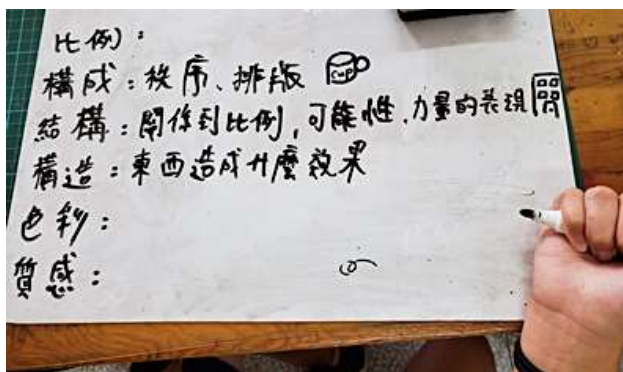 比例：
構成：秩序、排版 CUP
結構：關係到比例，可能性，力量的表現
構造：東西造成什麼效果
色彩：
質感：